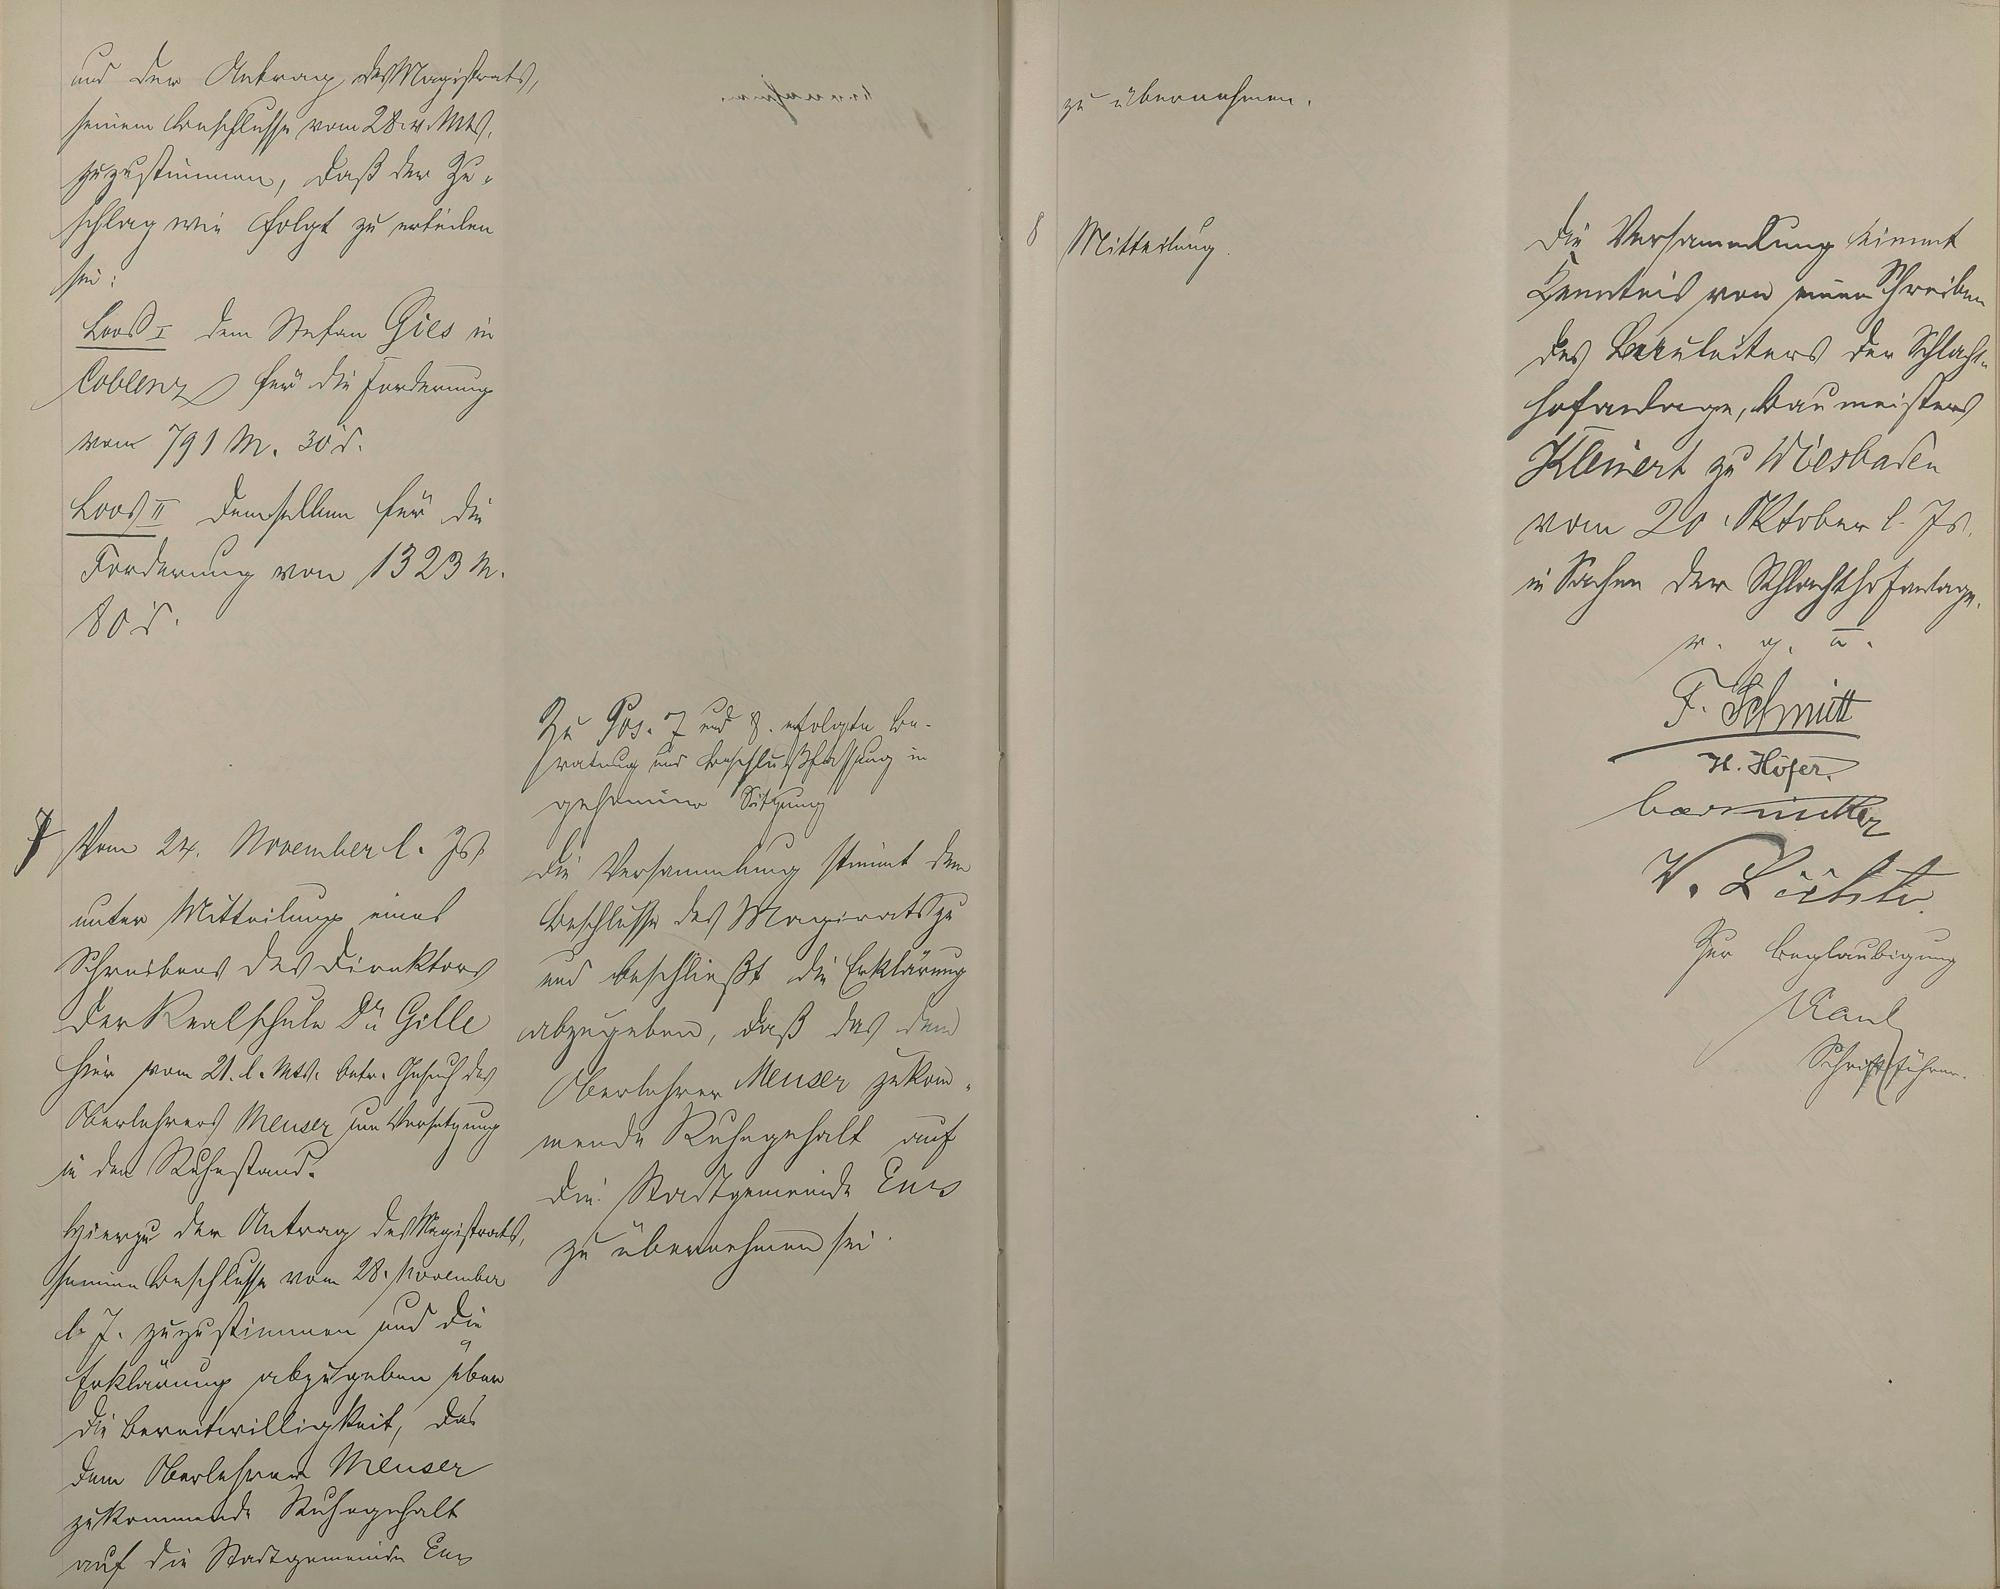 und der Antrag des Magistrats,
seinem Beschlusse vom 28. v. Mts.
zuzustimmen, daß der Zu-
schlag wie folgt zu erteilen
sei:
Loos I dem Stefan Gies in
Coblenz für die Forderung
vom 791 M. 30 d.
Loos II demselben für die
Forderung von 1323 M.
80 d.
7 Vom 24. November l. Js.
unter Mitteilung eines
Schreibens des Direktors
der Realschule Dr. Gille
hier vom 21. l. Mts. betr. Gesuch des
Oberlehrers Meuser um Versetzung
in den Ruhestand.
Hierzu der Antrag des Magistrats,
seinem Beschlusse vom 28. November
l. J. zuzustimmen und die
Erklärung abzugeben über
die Bereitwilligkeit, das
dem Oberlehrer Meuser
zukommende Ruhegehalt
auf die Stadtgemeinde Ems
Zu Pos. 7 und 8. erfolgte Be-
ratung und Beschlußfassung in
geheimer Sitzung
Die Versammlung stimmt dem
Beschlusse des Magirats zu
und beschließt die Erklärung
abzugeben, daß das dem
Oberlehrer Meuser zukom-
mende Ruhegehalt auf
die Stadtgemeinde Ems
zu übernehmen sei.
zu übernehmen.
8 Mitteilung.
Die Versammlung nimmt
Kenntnis von einem Schreiben
des Bauleiters der Schlacht-
hofanlage, Baumeisters
Kleinert zu Wiesbaden
vom 20. Oktober l. Js.
in Sachen der Schlachthofanlage.
v. g. u.
F. Schmitt
H. Höfer.
V.
Zur Beglaubigung
Kaul
Schriftführer.